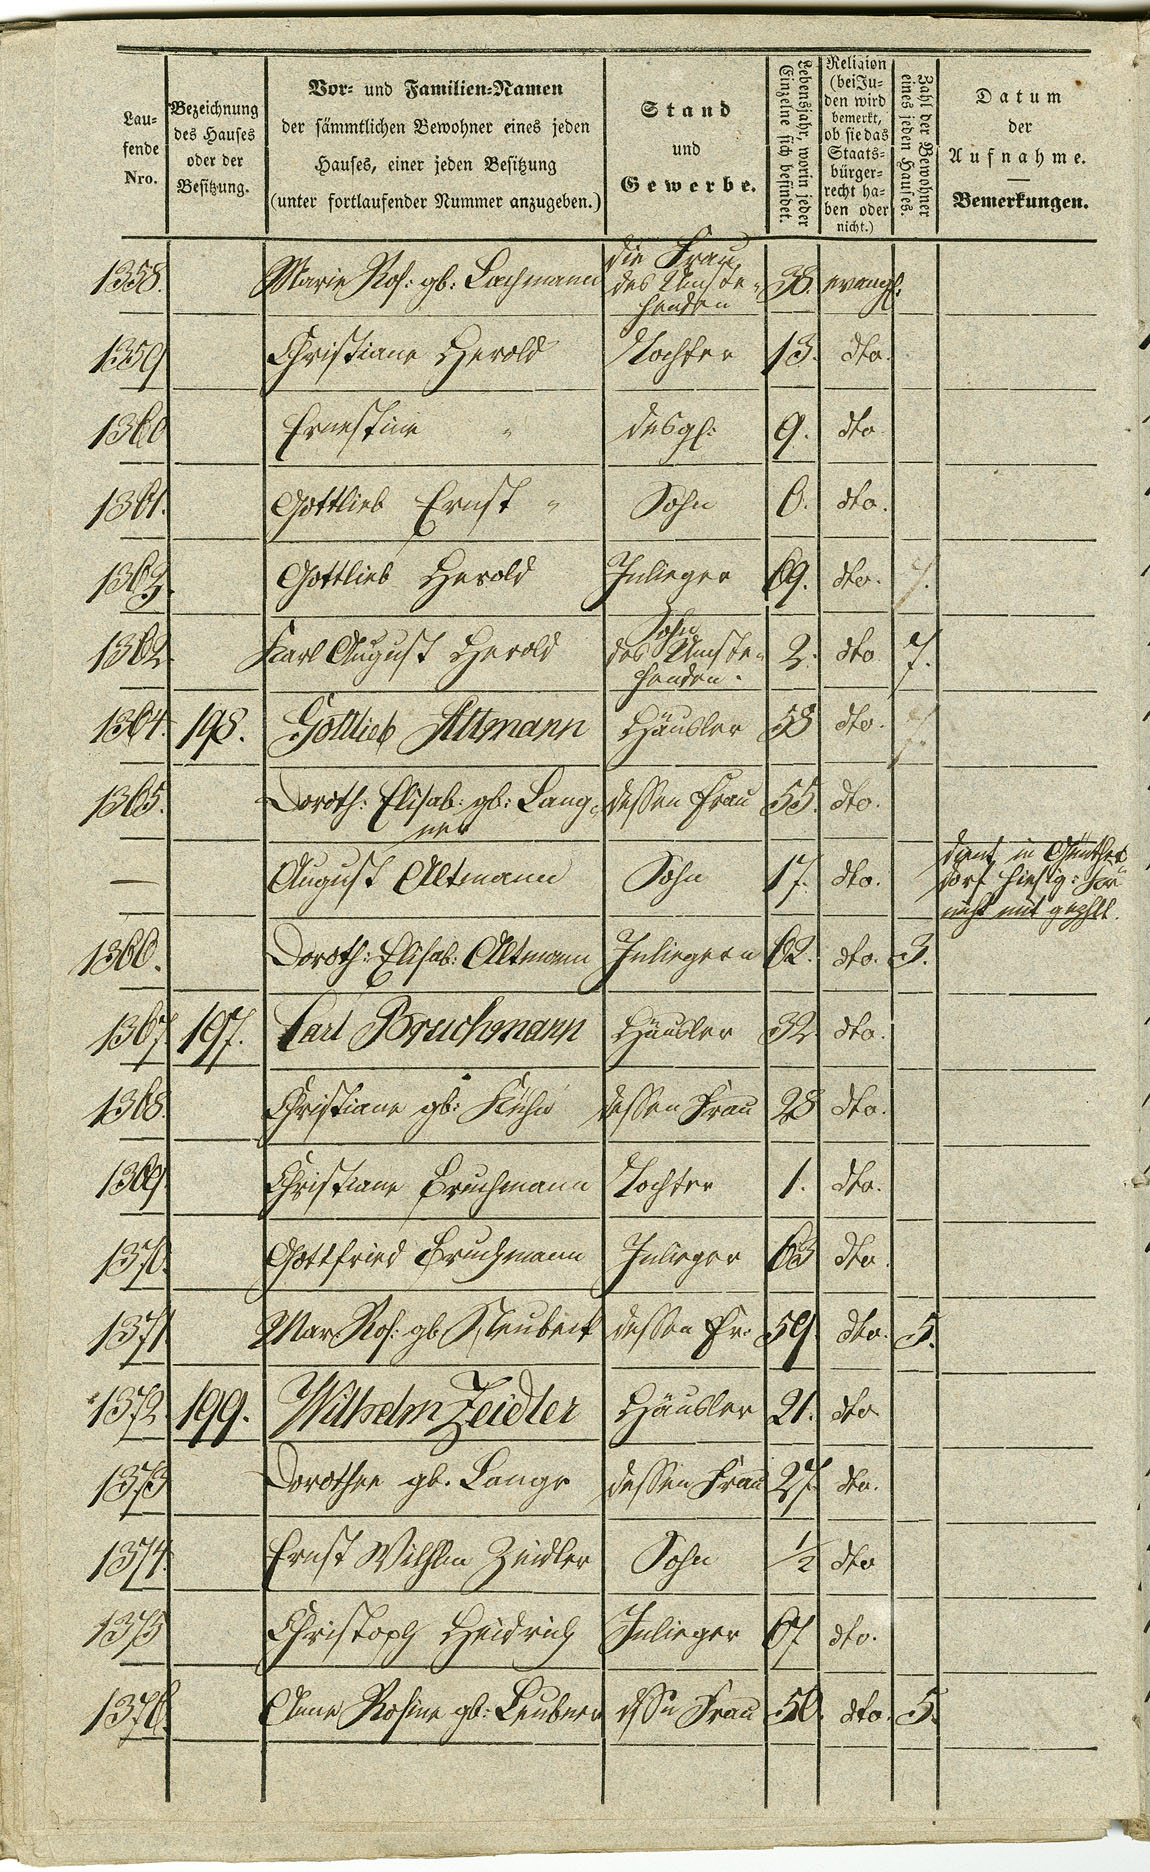 Lau-
fende
Nro.
Bezeichnung
des Hauses
oder der
Besitzung.
Vor- und Familien-Namen
der sämmtlichen Bewohner eines jeden
Hauses, einer jeden Besitzung
(unter fortlaufender Nummer anzugeben.)
Stand
und
Gewerbe.
Lebensjahr, worin jeder
Einzelne sich befindet.
Religion
(bei Ju-
den wird
bemerkt,
ob sie das
Staats-
bürger-
recht ha-
ben oder
nicht.)
Zahl der Bewohner
eines jeden Hauses.
Datum
der
Aufnahme.
Bemerkungen.
die Frau
1358. Marie Ros: gb: Lachmann des Umste- 38. evangl.
henden
1359 Christiane Herold Tochter 13. dto.
1360 Ernestine " desgl: 9. dto
1361. Gottlieb Ernst " Sohn 6. dto.
1363. Gottlieb Herold Inlieger 69. dto. 7.
Sohn
1362. Karl August Herold des Umste- 2. dto 7.
henden.
1364. 198. Gottlieb Altmann Häusler 58 dto. 7
1365. Doroth: Elisab: gb: Lang- dessen Frau 55. dto.
ner
— August Altmann Sohn 17. dto. dient in Günthers
dorf hiesig:
nicht mit gezählt.
1366. Doroth: Elisab: Altmann Inliegern 62. dto. 3.
1367 197. Carl Bruchmann Häusler 32. dto.
1368. Christiane gb: Kühn dessen Frau 28 dto.
1369 Christiane Bruchmann Tochter 1. dto.
1370. Gottfried Bruchmann Inlieger 63 dto.
1371 Mar. Ros: gb. Neubert dessen Fr. 59. dto. 5.
1372. 199. Wilhelm Zeidler Häusler 21. dto.
1373 Dorothee gb. Lange dessen Frau 27. dto.
1374. Ernst Wilhlm Zeidler Sohn 1/2 dto
1375 Christoph Heidrich Inlieger 67 dto.
1376. Anne Rosine gb: Leubner dssn Frau 50. dto. 5.